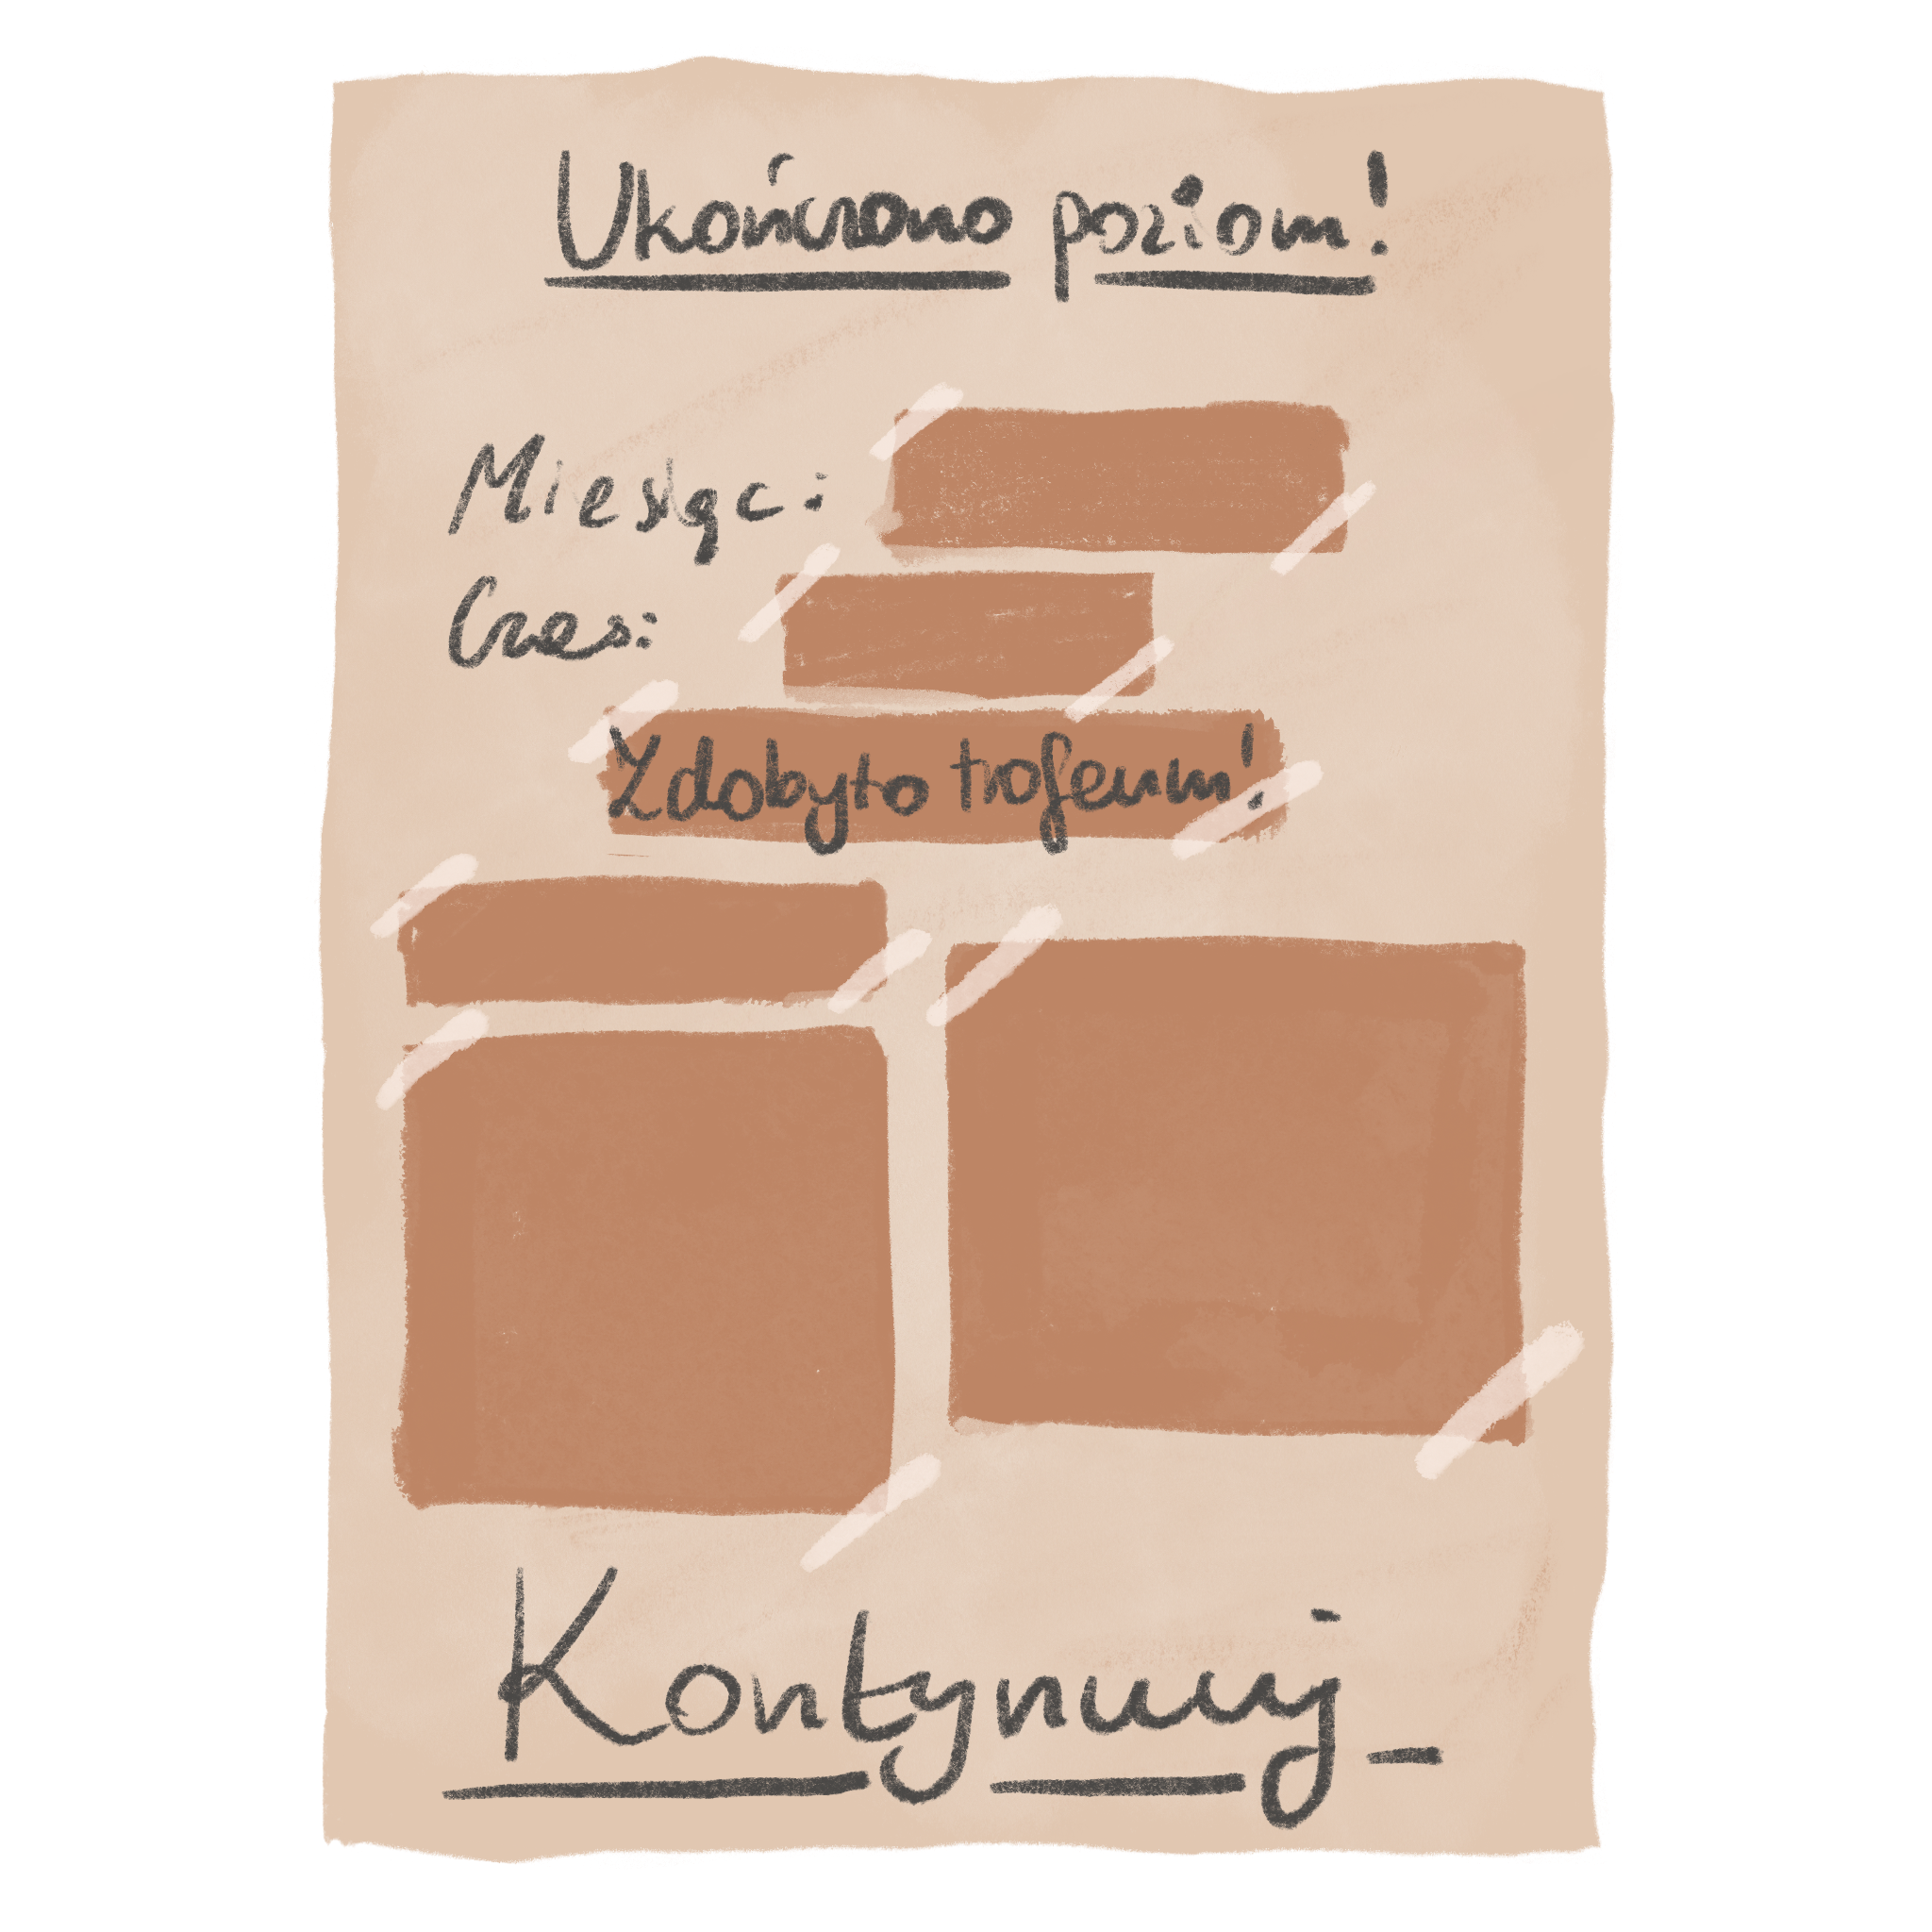 Ukończono poziom!
Miesiąc:
Czas:
Zdobyto trofeum!
Kontynuuj